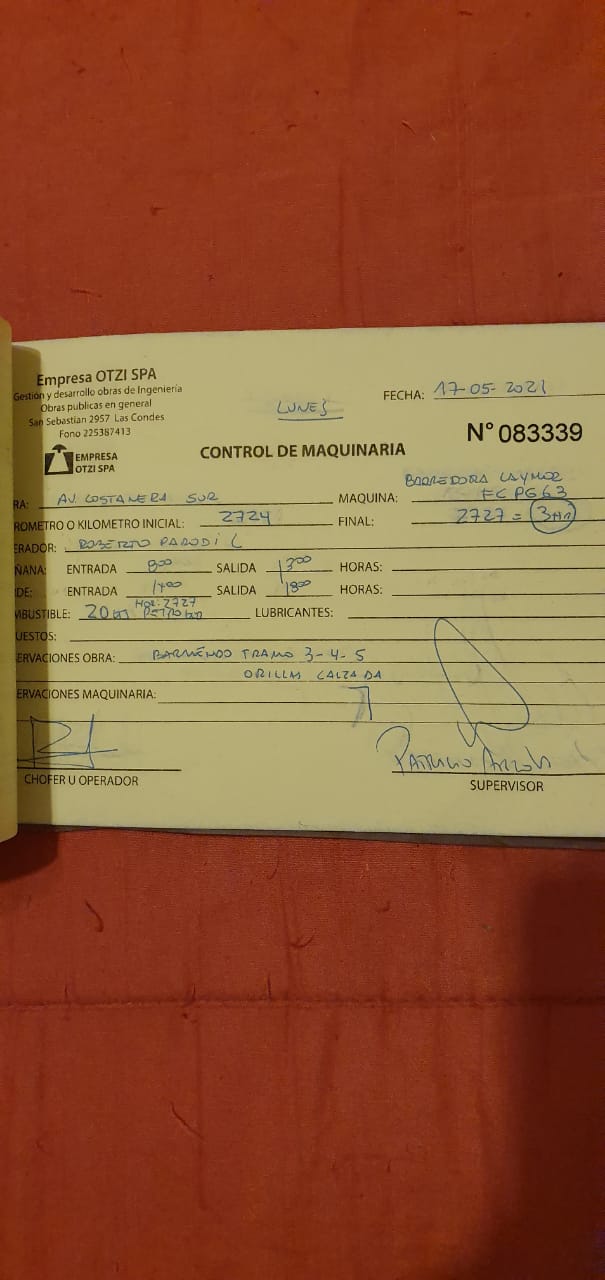 Empresa OTZI SPA
Gestión y desarrollo obras de Ingeniería
Obras publicas en general
San Sebastian 2957 Las Condes
Fono 225387413
EMPRESA
OTZI SPA
LUNES
FECHA: 17-05-2021
N° 083339
CONTROL DE MAQUINARIA
RA: AV. COSTANERA SUR MAQUINA: BARREDORA LAYMOR
FCPG63
ROMETRO O KILOMETRO INICIAL: 2724 FINAL: 2727 = 3Hr
ERADOR: ROBERTO PARODI L
ÑANA: ENTRADA 800 SALIDA 1300 HORAS:
DE: ENTRADA 1400 SALIDA 1800 HORAS:
MBUSTIBLE: 20 2727 LUBRICANTES:
UESTOS:
ERVACIONES OBRA: BARRIENDO TRAMO 3-4-5
ORILLAS CALZADA
ERVACIONES MAQUINARIA:
CHOFER U OPERADOR
SUPERVISOR